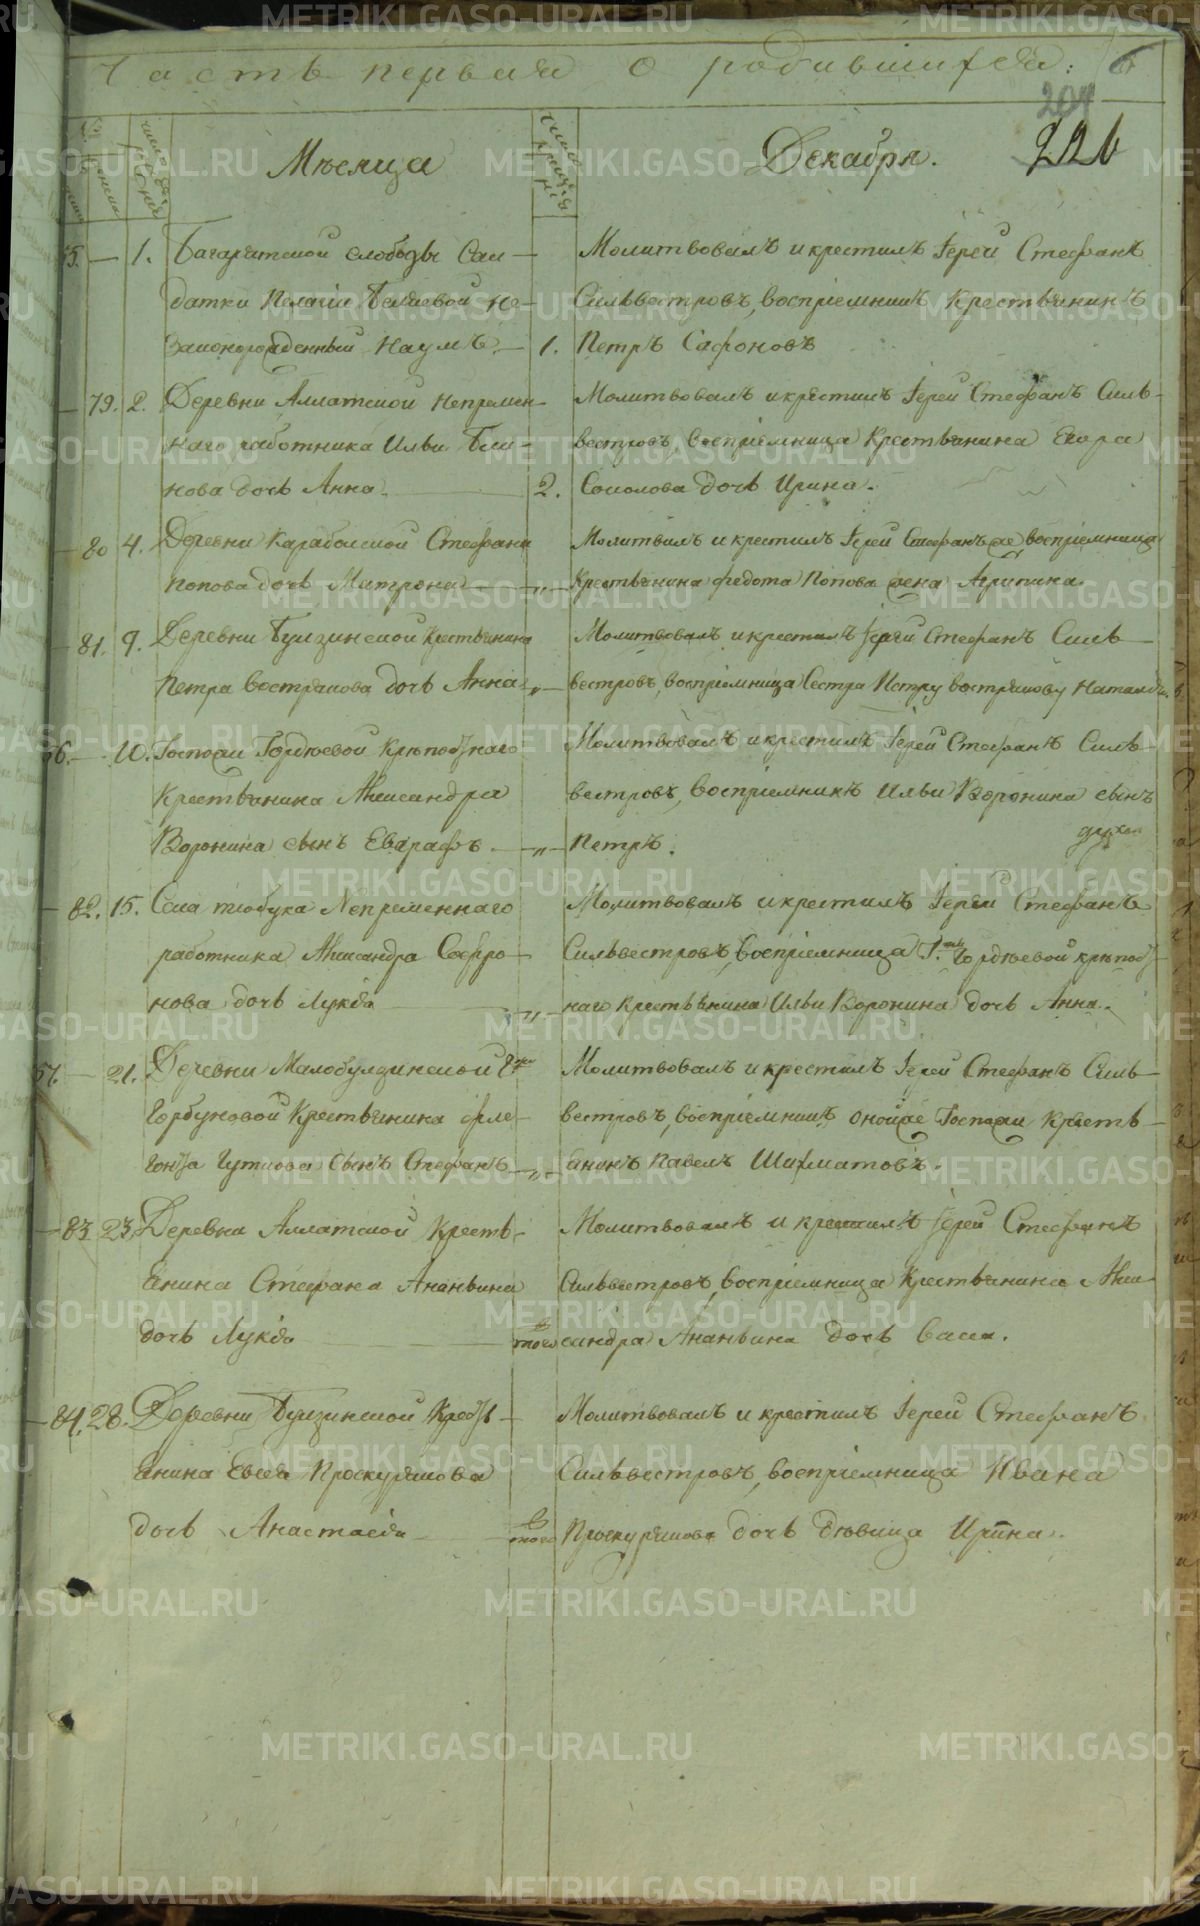 Часть первая о родившихся:
204
226
Месяца
Декабря.
55. — 1. Багаряцкой слободы Сол-
датки Пелагіи Беляевой не-
законорожденный Наумъ. — 1.
Молитвовалъ и крестилъ Іерей Стефанъ
Сильвестровъ, воспріемникъ Крестьянинъ
Петръ Сафоновъ
79. 2. Деревни Аллатской Непремен-
наго работника Ильи Бли-
нова дочь Анна. — 2.
Молитвовалъ и крестилъ Іерей Стефанъ Силь-
вестровъ, воспріемница Крестьянина Егора
Соколова дочь Ирина.
80 4. Деревни Карабольской Стефана
Попова дочь Матрона — „ —
Іерей Стефанъ воспріемница
Крестьянина Федота Попова жена Агрипина.
81. 9. Деревни Булзинской Крестьянина
Петра Вострякова дочь Анна „ —
Молитвовалъ и крестилъ Іерей Стефанъ Силь-
вестровъ, воспріемница Сестра Петру Вострякову Наталья.
56. — 10. Госпожи Гордѣевой Крѣпостнаго
Крестьянина Александра
Воронина сынъ Евграфъ. — „ —
Молитвовалъ и крестилъ Іерей Стефанъ Силь-
вестровъ, воспріемникъ Ильи Воронина сынъ
Петръ.
82. 15. Села Тюбука Непременнаго
работника Александра Софро-
нова дочь Лукія — „ —
Молитвовалъ и крестилъ Іерей Стефанъ
Сильвестровъ, воспріемница Г. Гордѣевой крѣпост-
наго Крестьянина Ильи Воронина дочь Анна.
57. — 21. Деревни Малобулзинской Г.
Горбуновой Крестьянина Фле-
гонта сынъ Стефанъ — „ —
Молитвовалъ и крестилъ Іерей Стефанъ Силь-
вестровъ, воспріемникъ оной же Госпожи Кресть-
янинъ Павелъ Шахматовъ.
83 23. Деревни Аллатской Кресть-
янина Стефана Ананьина
дочь Лукія — в того
Молитвовалъ и крестилъ Іерей Стефанъ
Сильвестровъ, воспріемница Крестьянина Алек-
сандра Ананьина дочь Васса.
84. 28. Деревни Булзинской Кресть-
янина Евсея Проскурякова
дочь Анастасія — в того
Молитвовалъ и крестилъ Іерей Стефанъ
Сильвестровъ, воспріемница Ивана
Проскурякова дочь дѣвица Ирина.